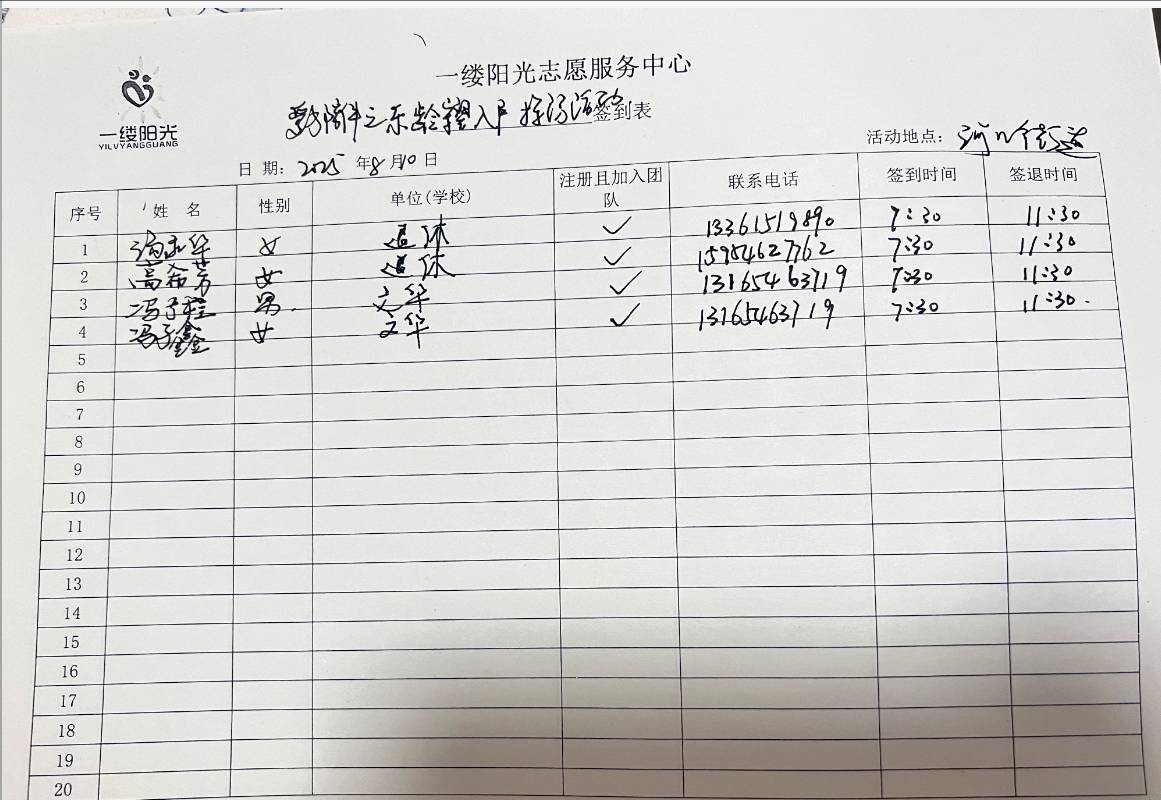 一缕阳光志愿服务中心
入户探访活动签到表
一缕阳光
YILVYANGGUANG
活动地点：河口街道
日期：2025年8月10日
序号 姓名 性别 单位(学校) 注册且加入团队 联系电话 签到时间 签退时间
1 华 女 退休 ✓ 13361519890 7:30 11:30
2 高希芳 女 退休 ✓ 15954627762 7:30 11:30
3 冯子程 男. 文华 ✓ 13165463719 7:30 11:30
4 冯子鑫 女 文华 ✓ 13165463719 7:30 11:30.
5
6
7
8
9
10
11
12
13
14
15
16
17
18
19
20